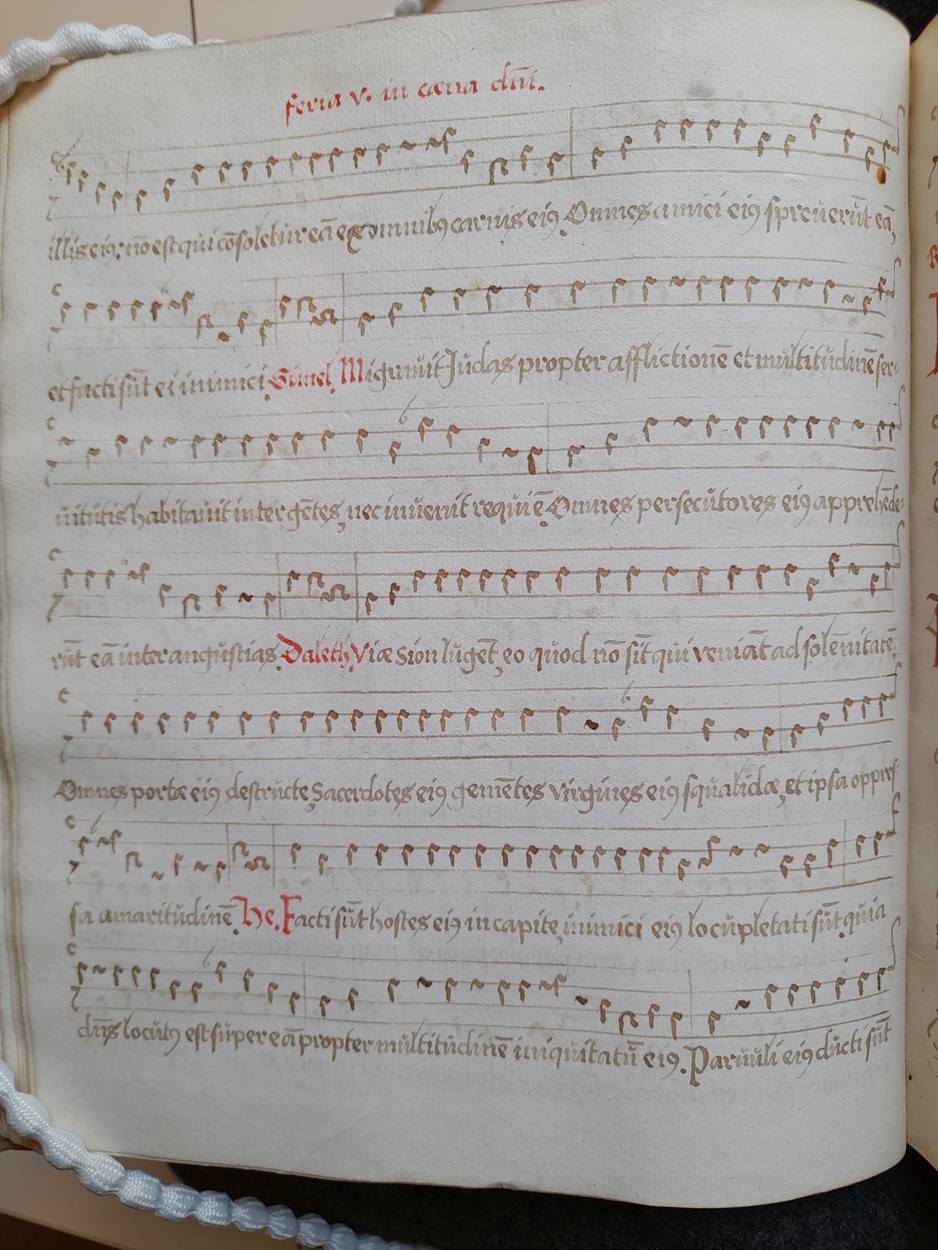 feria v. in cæna dn̄i.
illis eiꝰ: nō est qui cōsoletur eā ex omnibꝰ caris eiꝰ Omnes amici eiꝰ spreuerūt eā,
et facti sūt ei inimici. Gimel. Migrauit Judas propter afflictionē et multitudinē ser-
uitutis habitauit inter gētes, nec inuenit requiē. Omnes persecutores eiꝰ apprehēde-
rūt eā inter angustias. Daleth. Viæ sion lugēt, eo quod nō sīt qui veniāt ad solēnitatē.
Omnes portæ eiꝰ destructe, Sacerdotes eiꝰ gemētes virgines eiꝰ squalidæ, et ipsa oppres-
sa amaritudinē. He. Facti sūt hostes eiꝰ in capite, inimici eiꝰ locupletati sūt. quia
dn̄s locutꝰ est super eā propter multitudinē iniquitatū eiꝰ. Paruuli eiꝰ ducti sūt